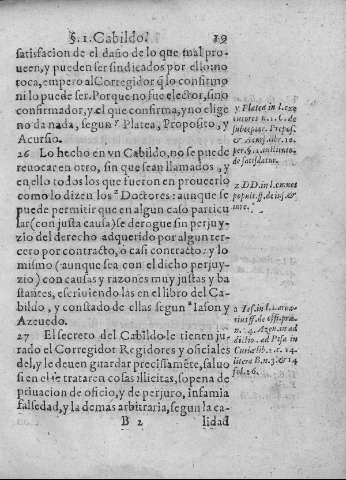 §. 1. Cabildo. 19
satisfacion de el daño de lo que mal pro-
ueen, y pueden ser sindicados por ello: no
toca, empero al Corregidor q̃ lo confirmo
ni lo puede ser. Porque no fue elector, sino
confirmador, y el que confirma, y no elige
no da nada, segun y Platea, Proposito, y
Acursio.
26 Lo hecho en vn Cabildo, no se puede
reuocar en otro, sin que sean llamados, y
en ello todos los que fueron en proueerlo
como lo dizen los z Doctores: aunque se
puede permitir que en algun caso particu
lar (con justa causa) se derogue sin perjuy-
zio del derecho adquerido por algun ter-
cero por contracto, o casi contracto: y lo
mismo (aunque sea con el dicho perjuy-
zio) con causas y razones muy justas y ba
stantes, escriuiendolas en el libro del Ca-
bildo, y constado de ellas segun a Iason y
Azeuedo.
27 El secreto del Cabildo le tienen ju-
rado el Corregidor Regidores y oficiales
del, y le deuen guardar precissamẽte, saluo
si en el se trataren cosas illicitas, sopena de
priuacion de oficio, y de perjuro, infamia
falsedad, y la demas arbitraria, segun la ca-
B 2 lidad
y Platea in l. exe
cutores n. 1. C. de
& Acurs.
de satisdat.
z DD. in l. omnes
populi. ff. de ius. &
iure.
a Ias. in l.
n. 4. Azeu. in ad
dictio. ad Pisa in
Curia lib. 1. c. 14.
litera B. n. 3. & 14
fol. 26.